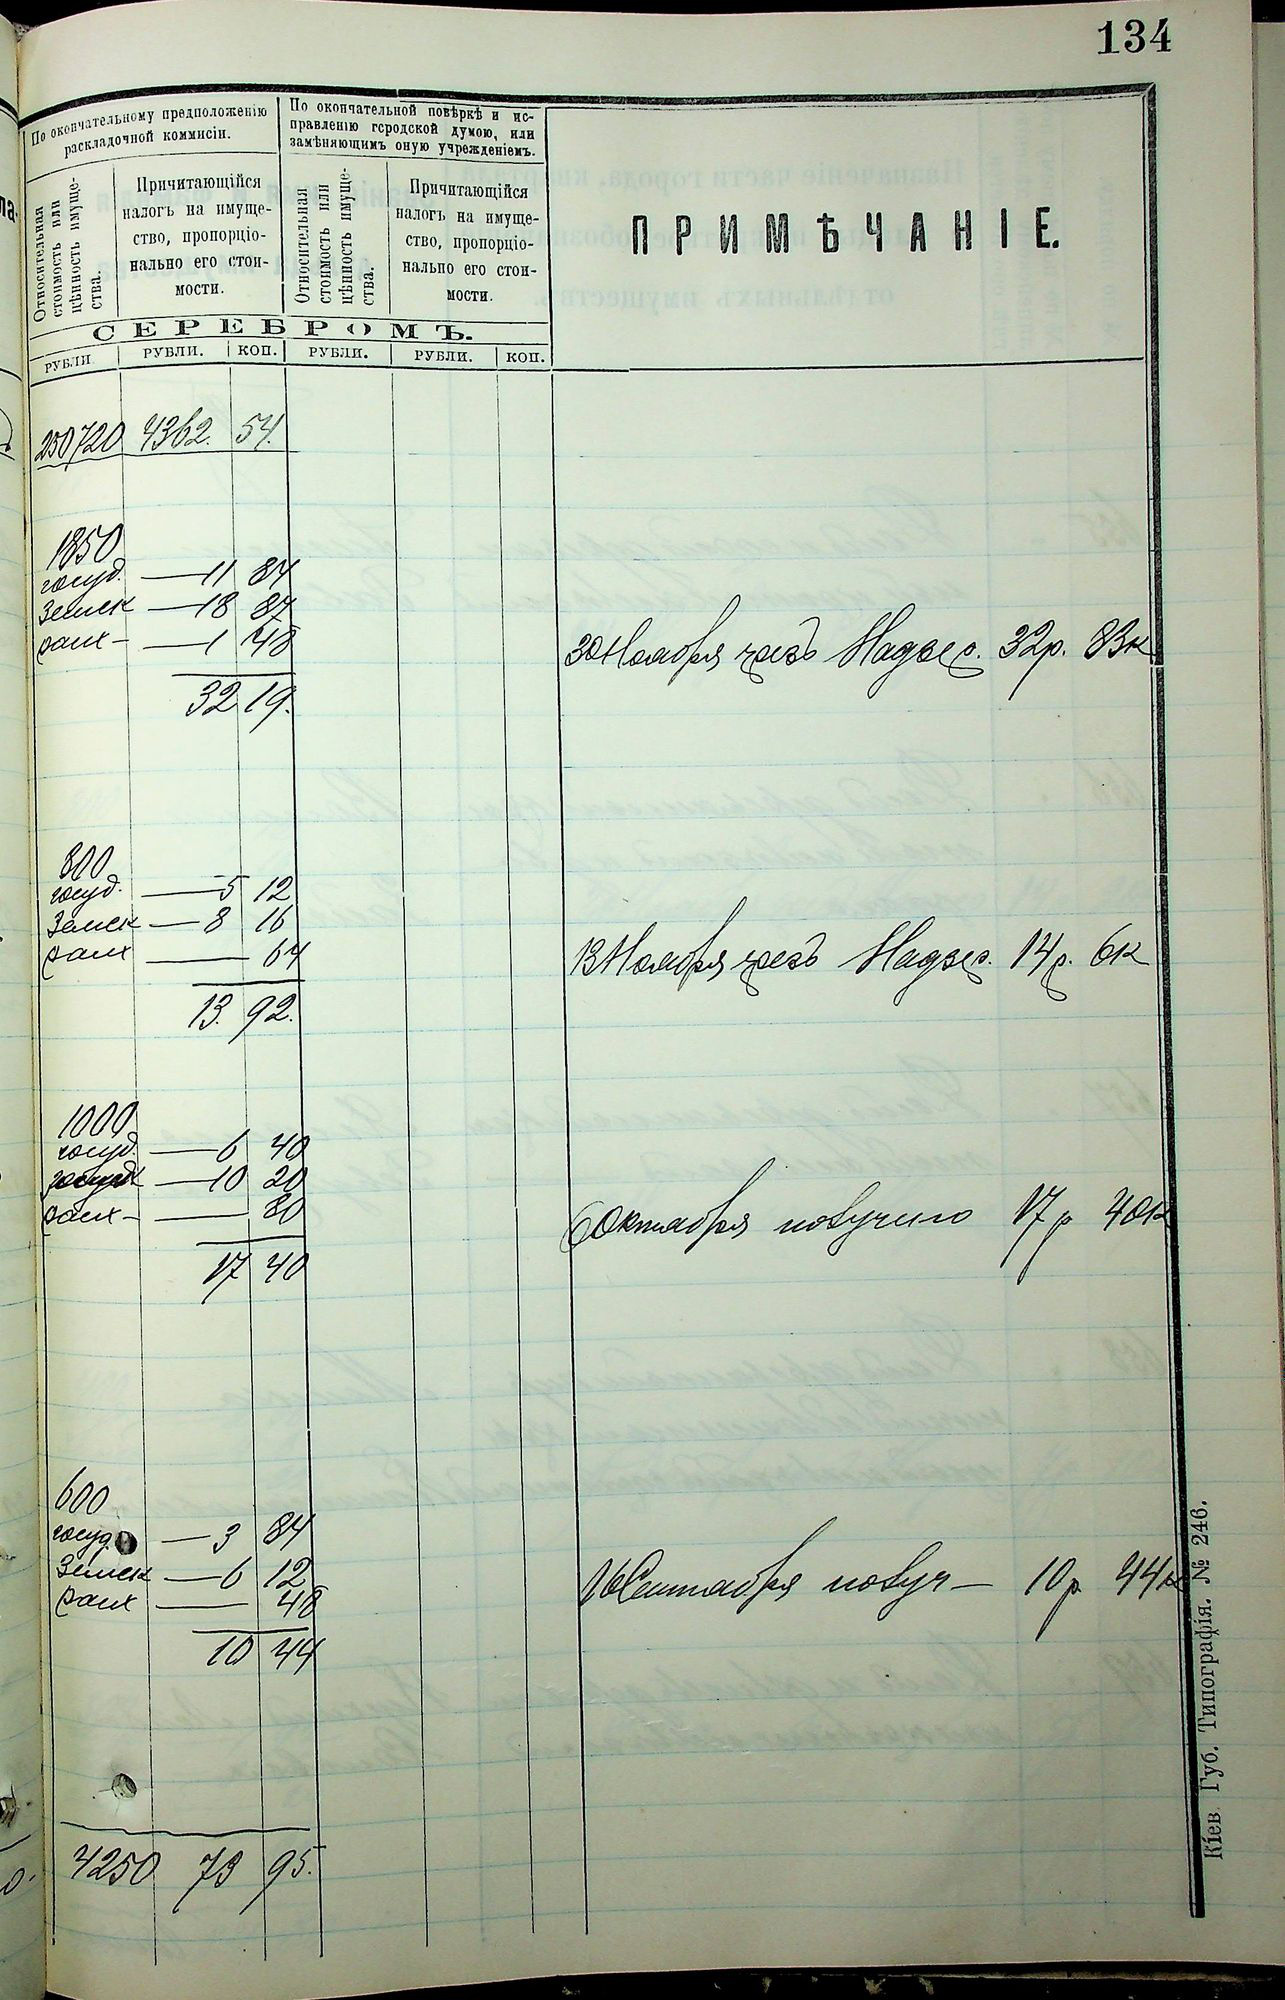 134
По окончательному предположенію
раскладочной коммисіи.
По окончательной повѣркѣ и ис-
правленію городской думою, или
замѣняющимъ оную учрежденіемъ.
Относительная
стоимость или
цѣнность имуще-
ства.
Причитающійся
налогъ на имуще-
ство, пропорціо-
нально его стои-
мости.
Относительная
стоимость или
цѣнность имуще-
ства.
Причитающійся
налогъ на имуще-
ство, пропорціо-
нально его стои-
мости.
ПРИМѢЧАНІЕ.
СЕРЕБРОМЪ.
РУБЛИ. РУБЛИ. КОП. РУБЛИ. РУБЛИ. КОП.
250720 4362. 54.
1850
госуд. — 11 84
Земск — 18 87
раих — 1 48
30 Ноября чрезъ Надзер. 32р. 83к
32 19.
800
госуд. — 5 12
Земск — 8 16
раих — 64
13 Ноября чрезъ Надзер. 14р. 6к
13. 92.
1000
госуд. — 6 40
— 10 20
раих — 80
6 Октября получено 17р 40к
17 40
600
госуд. — 3 84
Земск — 6 12
раих — 48
16 Сентября получ — 10р 44к
10 44
4250 73 95.
Кіев. Губ. Типографія. № 246.